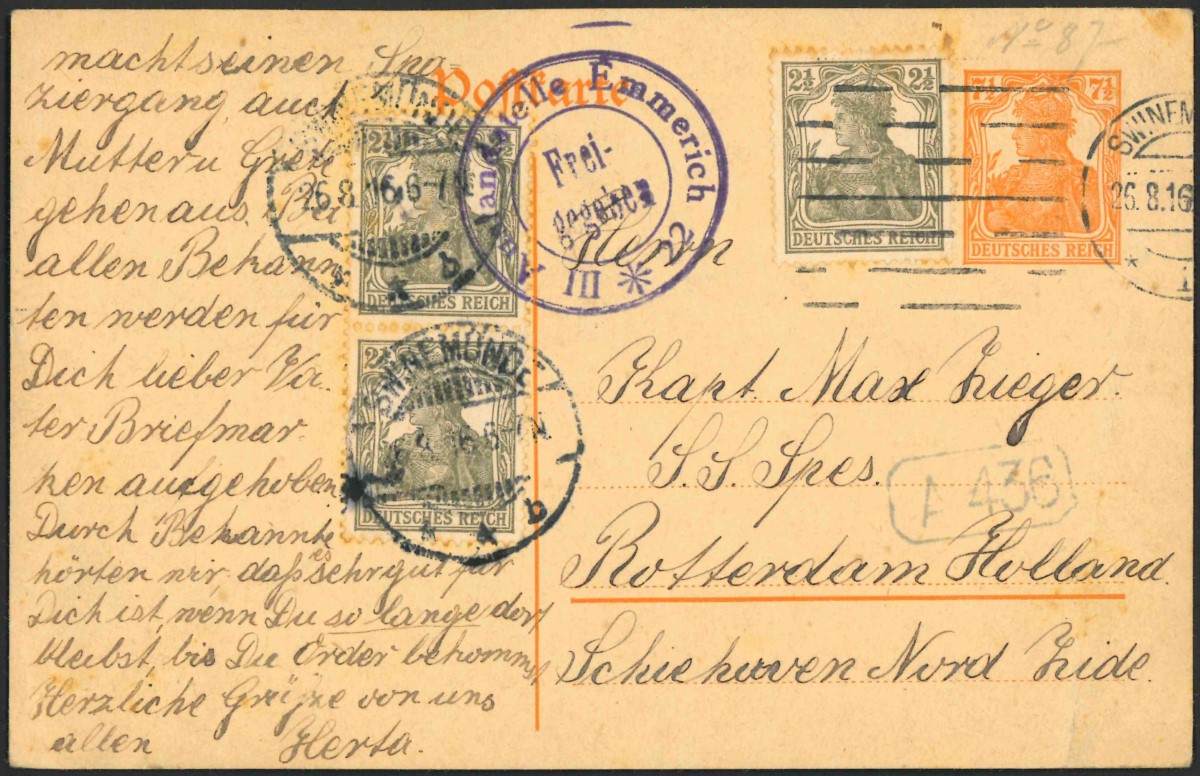 machts einen Spa-
ziergang, auch
Mutter u Grete
gehen aus. Bei
allen Bekann
ten werden für
Dich lieber Va.
ter Briefmar
ken aufgehoben
Durch Bekannte
hörten wir daß es sehr gut für
Dich ist, wenn Du so lange dort
bleibst, bis Du Order bekommst
Herzliche Grüße von uns
allen Herta.
Postkarte
Auslandstelle Emmerich
Frei-
gegeben
III * 22
2½ 2½
DEUTSCHES REICH
7½ 7½
DEUTSCHES REICH
SWINEM
26.8.16
26.8.16.6-7N
* * b
DEUTSCHES REICH
SWINEMÜNDE
6-7N
* * b
DEUTSCHES REICH
No 87
Herrn
Kapt. Max Zieger.
S.S. Spes.
A 436
Rotterdam Holland.
Schiehaven Nord Zide.